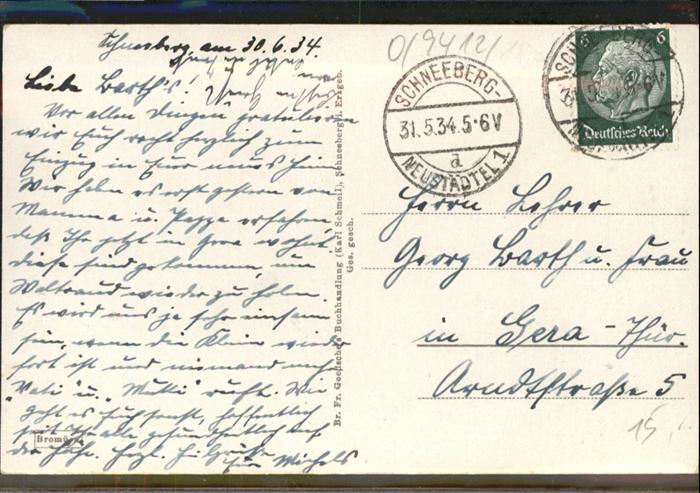 Schneeberg, am 30.6.34.
Liebe Barth's!
Vor allen Dingen gratulieren
wir Euch recht herzlich zum
Einzug in Euer neues Heim.
Wir haben es erst gestern von
Mamma u. Pappa erfahren,
daß Ihr jetzt in Gera wohnt,
diese sind gekommen, um
Waltraud wieder zu holen.
Es wird uns ja sehr einsam
sein, wenn die Kleine wieder
fort ist und niemand mehr
"Vati" u. "Mutti" ruft. Wie
geht es Euch sonst, hoffentlich
seid Ihr alle gesundheitlich auf
der Höhe. Herzl. Grüße
Michels
Bromüra
Br. Fr. Goedsche's Buchhandlung (Karl Schmeil), Schneeberg i. Erzgeb.
Ges. gesch.
0/9412/
SCHNEEBERG-
31.5.34.5-6V
a
NEUSTÄDTEL 1
SCHNEEBERG-
5-6V
6
6
Deutsches Reich
Herrn Lehrer
Georg Barth u. Frau
in Gera-Thür.
Arndtstraße 5
15,